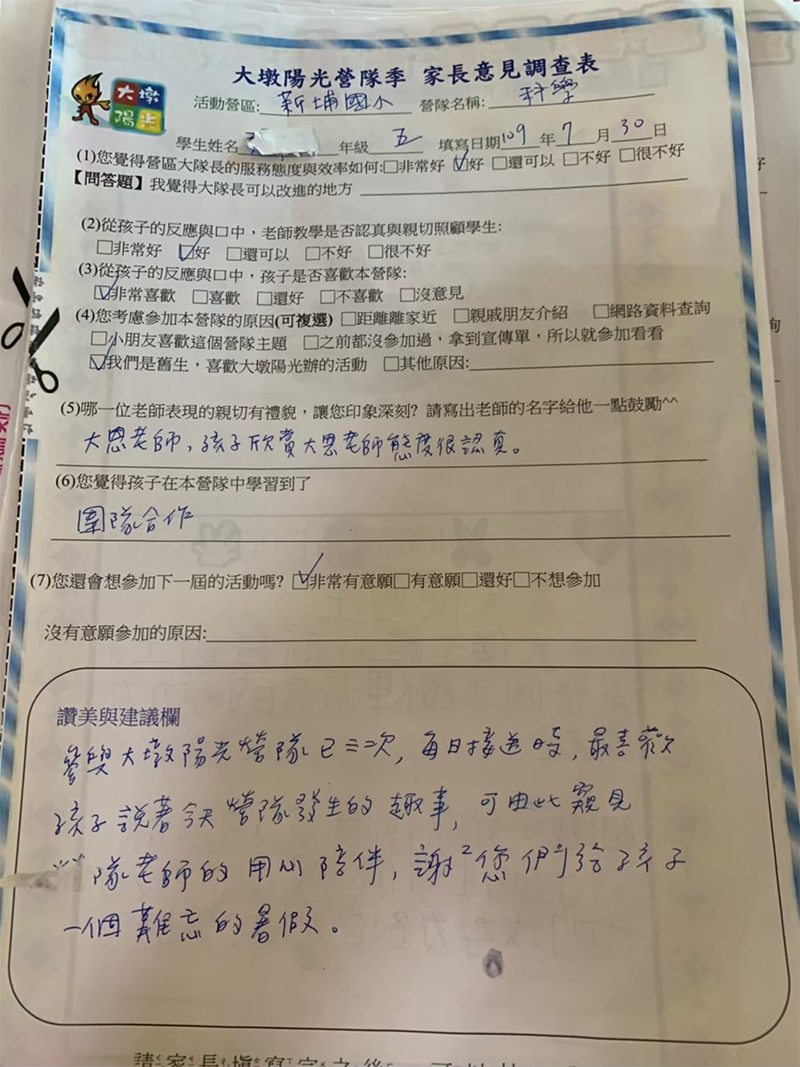 大墩陽光營隊季 家長意見調查表
大墩
陽光
活動營區:新埔國小 營隊名稱:科學
學生姓名 年級 五 填寫日期109年7月30日
(1)您覺得營區大隊長的服務態度與效率如何:□非常好 ☑好 □還可以 □不好 □很不好
【問答題】我覺得大隊長可以改進的地方
(2)從孩子的反應與口中,老師教學是否認真與親切照顧學生:
□非常好 ☑好 □還可以 □不好 □很不好
(3)從孩子的反應與口中,孩子是否喜歡本營隊:
☑非常喜歡 □喜歡 □還好 □不喜歡 □沒意見
(4)您考慮參加本營隊的原因(可複選) □距離離家近 □親戚朋友介紹 □網路資料查詢
□小朋友喜歡這個營隊主題 □之前都沒參加過,拿到宣傳單,所以就參加看看
☑我們是舊生,喜歡大墩陽光辦的活動 □其他原因:
(5)哪一位老師表現的親切有禮貌,讓您印象深刻? 請寫出老師的名字給他一點鼓勵^^
大恩老師,孩子欣賞大恩老師態度很認真。
(6)您覺得孩子在本營隊中學習到了
團隊合作
(7)您還會想參加下一屆的活動嗎? ☑非常有意願□有意願□還好□不想參加
沒有意願參加的原因:
讚美與建議欄
參與大墩陽光營隊已三次,每日接送時,最喜歡
孩子說著今天營隊發生的趣事,可由此窺見
隊老師的用心陪伴,謝²您們給孩子
一個難忘的暑假。
請家長填寫完之後